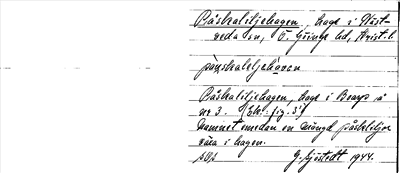 Påskaliljehagen, hage i Häst-
veda sn, Ö. Göinge hd, Krist. l.
påskaleljehaven
Påskaliljehagen, hage i Boarp å
nr 3. (Ek.: fig. 31)
Namnet emedan en mängd påskliljor
växa i hagen.
G. Sjöstedt 1944.